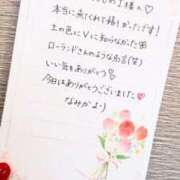 の1様へ♡
本当に無てくれて嬉しかったです!
土の色にVに知らなかった
ローランドさんのような名言(笑)
いい気をありがとう
今日はありがとうございました
なみかより